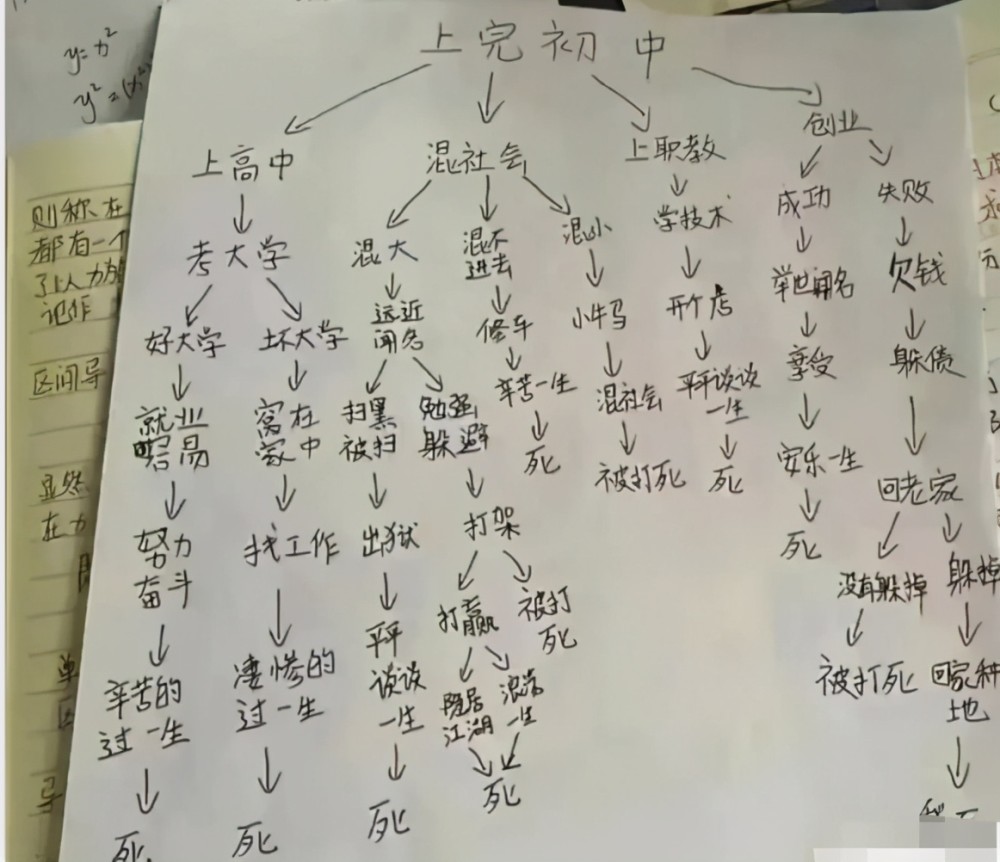 上完初中
上高中
混社会
上职教
创业
考大学
混大
混不
进去
混小
学技术
成功
失败
好大学
坏大学
远近
闻名
修车
小牛马
开个店
举世闻名
欠钱
就业
容易
窝在
家中
扫黑
被扫
勉强
躲避
辛苦一生
混社会
平平谈谈
一生
享受
躲债
努力
奋斗
找工作
出狱
打架
死
被打死
死
安乐一生
回老家
辛苦的
过一生
凄惨的
过一生
平平
谈谈
一生
打赢
被打
死
死
没有躲掉
躲掉
隐居
江湖
浪荡
一生
被打死
回家种
地
死
死
死
死
y=x²
y²=(x²)
则称在
都有一个
记作
区间导
显然
在力
单
区
导